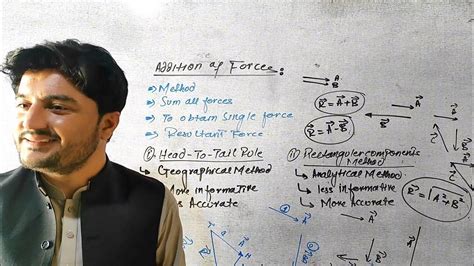 Addition of Forces:
→ Method
→ Sum all forces
→ To obtain single force
→ Resultant Force
A
B
R = A + B
R = A - B
A
B
i) Head-To-Tail Rule
↳ Geographical Method
↳ More informative
Less Accurate
ii) Rectanguler components Method
↳ Analytical Method
↳ less informative
↳ More Accurate
A
B
R